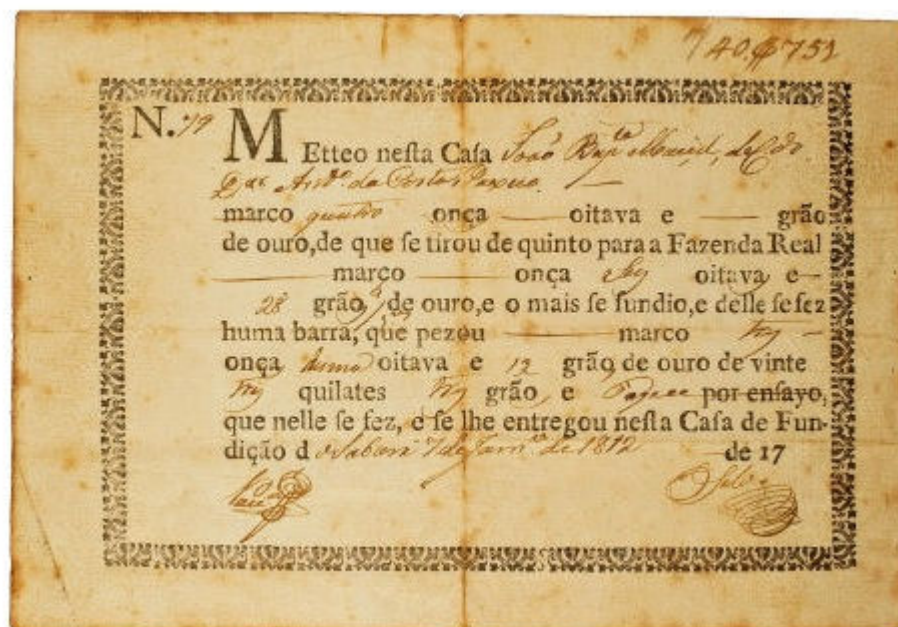 40$752
N. 79 METteo nesta Casa João Bapᵗᵃ
marco quatro onça — oitava e — grão
de ouro, de que ſe tirou de quinto para a Fazenda Real
— marco — onça oitava e —
28 grão de ouro, e o mais ſe fundio, e delle ſe fez
huma barra, que pezou — marco —
onça huma oitava e 12 grão de ouro de vinte
quilates grão, e por enſayo,
que nelle ſe fez, e ſe lhe entregou neſta Caſa de Fun-
dição d o Sabará 7 de Janrº de 1812 — de 17